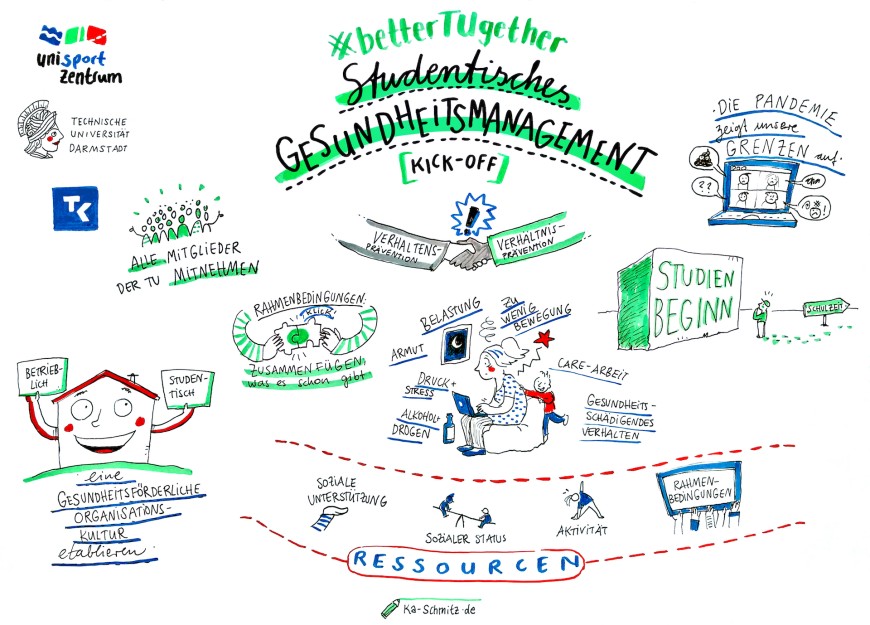 #betterTUgether
Studentisches
GESUNDHEITSMANAGEMENT
[KICK-OFF]
uni sport
zentrum
TECHNISCHE
UNIVERSITÄT
DARMSTADT
TK
ALLE MITGLIEDER
DER TU MITNEHMEN
VERHALTENS-
PRÄVENTION
!
VERHÄLTNIS-
PRÄVENTION
·DIE PANDEMIE
zeigt unsere
GRENZEN auf·
??
STUDIEN
BEGINN
SCHULZEIT
RAHMENBEDINGUNGEN:
KLICK!
ZUSAMMENFÜGEN,
was es schon gibt
BELASTUNG
ZU
WENIG
BEWEGUNG
ARMUT
DRUCK+
STRESS
ALKOHOL+
DROGEN
CARE-ARBEIT
GESUNDHEITS-
SCHÄDIGENDES
VERHALTEN
BETRIEB-
LICH
STUDEN-
TISCH
eine
GESUNDHEITSFÖRDERLICHE
ORGANISATIONS-
KULTUR
etablieren·
SOZIALE
UNTERSTÜTZUNG
SOZIALER STATUS
AKTIVITÄT
RAHMEN-
BEDINGUNGEN
RESSOURCEN
Ka-Schmitz·de